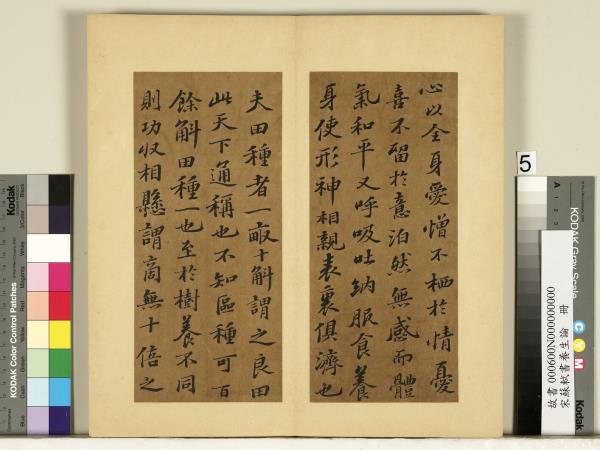 心以全身愛憎不栖於情憂
喜不留於意泊然無感而體
氣和平又呼吸吐納服食養
身使形神相親表裏俱濟也
夫田種者一畝十斛謂之良田
此天下通稱也不知區種可百
餘斛田種一也至於樹養不同
則功收相懸謂商無十倍之
5
KODAK Gray Scale
C Y M
Kodak
故書 000600N000000000
宋蘇軾書養生論 冊
KODAK Color Control Patches
Kodak